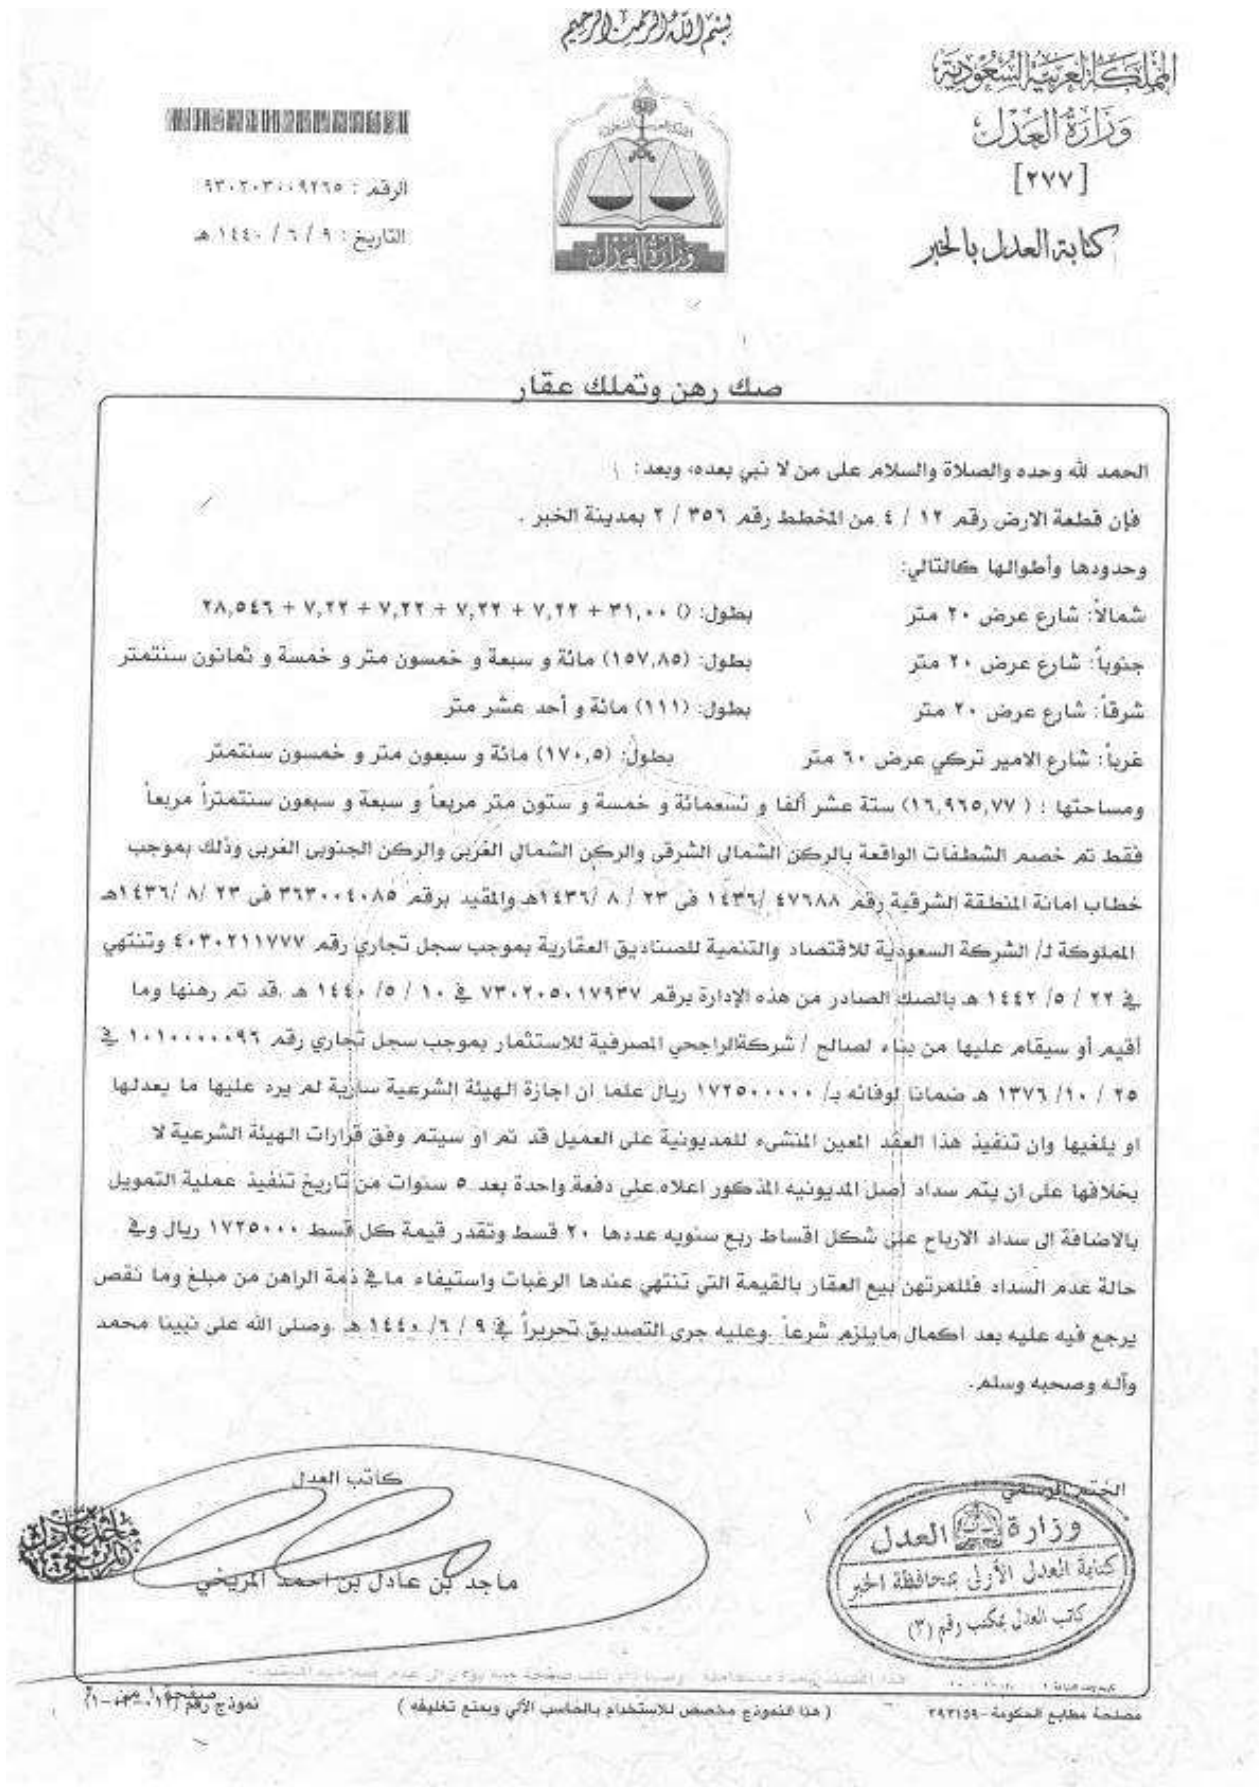 بسم الله الرحمن الرحيم
المملكة العربية السعودية
وزارة العدل
[٢٧٧]
كتابة العدل بالخبر
وزارة العدل
الرقم : ٩٣٠٢٠٣٠٠٩٢٦٥
التاريخ : ٩ / ٦ / ١٤٤٠ هـ
صك رهن وتملك عقار
الحمد لله وحده والصلاة والسلام على من لا نبي بعده، وبعد :
فإن قطعة الارض رقم ١٢ / ٤ من المخطط رقم ٣٥٦ / ٢ بمدينة الخبر .
وحدودها وأطوالها كالتالي:
شمالاً: شارع عرض ٢٠ متر بطول: () ٣١,٠٠ + ٧,٢٢ + ٧,٢٢ + ٧,٢٢ + ٧,٢٢ + ٢٨,٥٤٦
جنوباً: شارع عرض ٢٠ متر بطول: (١٥٧,٨٥) مائة و سبعة و خمسون متر و خمسة و ثمانون سنتمتر
شرقاً: شارع عرض ٢٠ متر بطول: (١١١) مائة و أحد عشر متر
غرباً: شارع الامير تركي عرض ٦٠ متر بطول: (١٧٠,٥) مائة و سبعون متر و خمسون سنتمتر
ومساحتها : ( ١٦,٩٦٥,٧٧) ستة عشر ألفا و تسعمائة و خمسة و ستون متر مربعاً و سبعة و سبعون سنتمتراً مربعاً
فقط تم خصم الشطفات الواقعة بالركن الشمالى الشرقى والركن الشمالى الغربى والركن الجنوبى الغربى وذلك بموجب
خطاب امانة المنطقة الشرقية رقم ٤٧٦٨٨ /١٤٣٦ فى ٢٣ / ٨ /١٤٣٦هـ والمقيد برقم ٣٦٣٠٠٤٠٨٥ فى ٢٣ /٨ /١٤٣٦هـ
المملوكة لـ/ الشركة السعودية للاقتصاد والتنمية للصناديق العقارية بموجب سجل تجاري رقم ٤٠٣٠٢١١٧٧٧ وتنتهي
في ٢٢ / ٥ / ١٤٤٢ هـ بالصك الصادر من هذه الإدارة برقم ٧٣٠٢٠٥٠١٧٩٣٧ في ١٠ / ٥ / ١٤٤٠ هـ .قد تم رهنها وما
أقيم أو سيقام عليها من بناء لصالح / شركةالراجحي المصرفية للاستثمار بموجب سجل تجاري رقم ١٠١٠٠٠٠٠٩٦ في
٢٥ / ١٠ / ١٣٧٦ هـ ضمانا لوفائه بـ/ ١٧٢٥٠٠٠٠٠ ريال علما ان اجازة الهيئة الشرعية سارية لم يرد عليها ما يعدلها
او يلغيها وان تنفيذ هذا العقد المعين المنشىء للمديونية على العميل قد تم او سيتم وفق قرارات الهيئة الشرعية لا
بخلافها على ان يتم سداد اصل المديونيه المذكور اعلاه على دفعة واحدة بعد ٥ سنوات من تاريخ تنفيذ عملية التمويل
بالاضافة الى سداد الارباح على شكل اقساط ربع سنويه عددها ٢٠ قسط وتقدر قيمة كل قسط ١٧٢٥٠٠٠ ريال وفي
حالة عدم السداد فللمرتهن بيع العقار بالقيمة التي تنتهي عندها الرغبات واستيفاء مافي ذمة الراهن من مبلغ وما نقص
يرجع فيه عليه بعد اكمال مايلزم شرعاً .وعليه جرى التصديق تحريراً في ٩ / ٦ / ١٤٤٠ هـ .وصلى الله على نبينا محمد
وآله وصحبه وسلم.
الختم الرسمي
كاتب العدل
وزارة العدل
كتابة العدل الأولى بمحافظة الخبر
كاتب العدل بمكتب رقم (٣)
ماجد بن عادل بن احمد المريخي
مصلحة مطابع الحكومة - ٣٩٣١٥٩
( هذا النموذج مخصص للاستخدام بالحاسب الآلي ويمنع تغليفه )
نموذج رقم